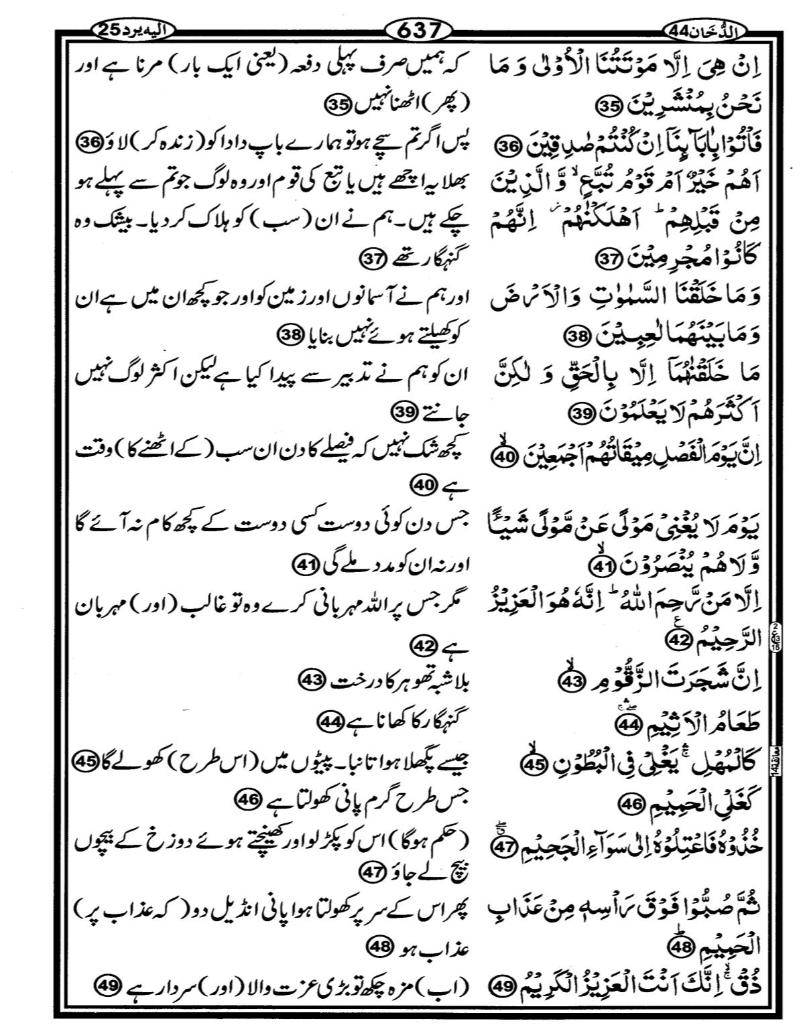 الدُّخان44
637
الیه یرد25
اِنۡ هِىَ اِلَّا مَوۡتَتُنَا الۡاُوۡلٰى وَ مَا
نَحۡنُ بِمُنۡشَرِيۡنَ 35
فَاۡتُوۡا بِاٰبَآٮِٕنَاۤ اِنۡ كُنۡتُمۡ صٰدِقِيۡنَ 36
اَهُمۡ خَيۡرٌ اَمۡ قَوۡمُ تُبَّعٍۙ وَّ الَّذِيۡنَ
مِنۡ قَبۡلِهِمۡؕ اَهۡلَكۡنٰهُمۡ اِنَّهُمۡ
كَانُوۡا مُجۡرِمِيۡنَ 37
وَمَا خَلَقۡنَا السَّمٰوٰتِ وَالۡاَرۡضَ
وَمَا بَيۡنَهُمَا لٰعِبِيۡنَ 38
مَا خَلَقۡنٰهُمَاۤ اِلَّا بِالۡحَقِّ وَ لٰكِنَّ
اَكۡثَرَهُمۡ لَا يَعۡلَمُوۡنَ 39
اِنَّ يَوۡمَ الۡفَصۡلِ مِيۡقَاتُهُمۡ اَجۡمَعِيۡنَۙ 40
يَوۡمَ لَا يُغۡنِىۡ مَوۡلًى عَنۡ مَّوۡلًى شَيۡـًٔا
وَّلَا هُمۡ يُنۡصَرُوۡنَۙ 41
اِلَّا مَنۡ رَّحِمَ اللّٰهُؕ اِنَّهٗ هُوَ الۡعَزِيۡزُ
الرَّحِيۡمُ 42
اِنَّ شَجَرَتَ الزَّقُّوۡمِۙ 43
طَعَامُ الۡاَثِيۡمِ 44
كَالۡمُهۡلِ ۛۚ يَغۡلِىۡ فِى الۡبُطُوۡنِۙ 45
كَغَلۡىِ الۡحَمِيۡمِ 46
خُذُوۡهُ فَاعۡتِلُوۡهُ اِلٰى سَوَآءِ الۡجَحِيۡمِ 47
ثُمَّ صُبُّوۡا فَوۡقَ رَاۡسِهٖ مِنۡ عَذَابِ
الۡحَمِيۡمِؕ 48
ذُقۡ ۙۚ اِنَّكَ اَنۡتَ الۡعَزِيۡزُ الۡكَرِيۡمُ 49
کہ ہمیں صرف پہلی دفعہ (یعنی ایک بار) مرنا ہے اور
(پھر) اٹھنا نہیں 35
پس اگر تم سچے ہو تو ہمارے باپ دادا کو (زندہ کر) لاؤ 36
بھلا یہ اچھے ہیں یا تبع کی قوم اور وہ لوگ جو تم سے پہلے ہو
چکے ہیں۔ ہم نے ان (سب) کو ہلاک کردیا۔ بیشک وہ
گنہگار تھے 37
اور ہم نے آسمانوں اور زمین کو اور جو کچھ ان میں ہے ان
کو کھیلتے ہوئے نہیں بنایا 38
ان کو ہم نے تدبیر سے پیدا کیا ہے لیکن اکثر لوگ نہیں
جانتے 39
کچھ شک نہیں کہ فیصلے کا دن ان سب (کے اٹھنے کا) وقت
ہے 40
جس دن کوئی دوست کسی دوست کے کچھ کام نہ آئے گا
اور نہ ان کو مدد ملے گی 41
مگر جس پر اللہ مہربانی کرے وہ تو غالب (اور) مہربان
ہے 42
بلاشبہ تھوہر کا درخت 43
گنہگار کا کھانا ہے 44
جیسے پگھلا ہوا تانبا۔ پیٹوں میں (اس طرح) کھولے گا 45
جس طرح گرم پانی کھولتا ہے 46
(حکم ہوگا) اس کو پکڑ لو اور کھینچتے ہوئے دوزخ کے بیچوں
بیچ لے جاؤ 47
پھر اس کے سر پر کھولتا ہوا پانی انڈیل دو (کہ عذاب پر)
عذاب ہو 48
(اب) مزہ چکھ تو بڑی عزت والا (اور) سردار ہے 49